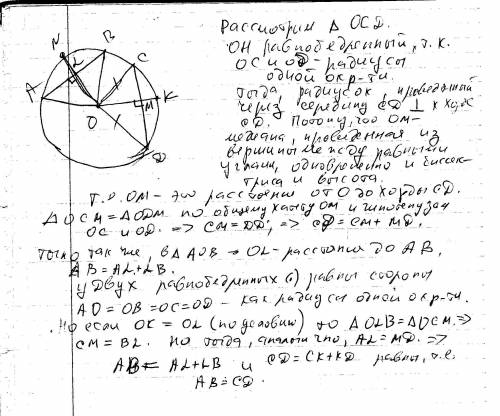 Рассмотрим Δ OCD.
Он равнобедренный, т.к.
OC и OD - радиусы
одной окр-ти.
Тогда, радиус OK, проведённый
через середину CD ⊥ к хорде
CD. Потому, что OM-
медиана, проведённая из
вершины между равными
углами, одновременно и биссек-
триса и высота.
Т.о. OM - это расстояние от O до хорды CD.
ΔOCM = ΔODM по общему катету OM и гипотенузам
OC и OD. => CM = => CD = CM + MD.
Точно так же, в ΔAOB → OL - расстояние до AB,
AB = AL + LB.
У двух равнобедренных равны стороны
AO = OB = OC = OD - как радиусы одной окр-ти.
Но если OK = OL (по условию) то ΔOLB = ΔOCM =>
CM = BL. Но тогда, аналогично, AL = MD. =>
AB = AL + LB и CD = CK + KD равны, т.е.
AB = CD.
N
B
C
L
A
M
K
O
D